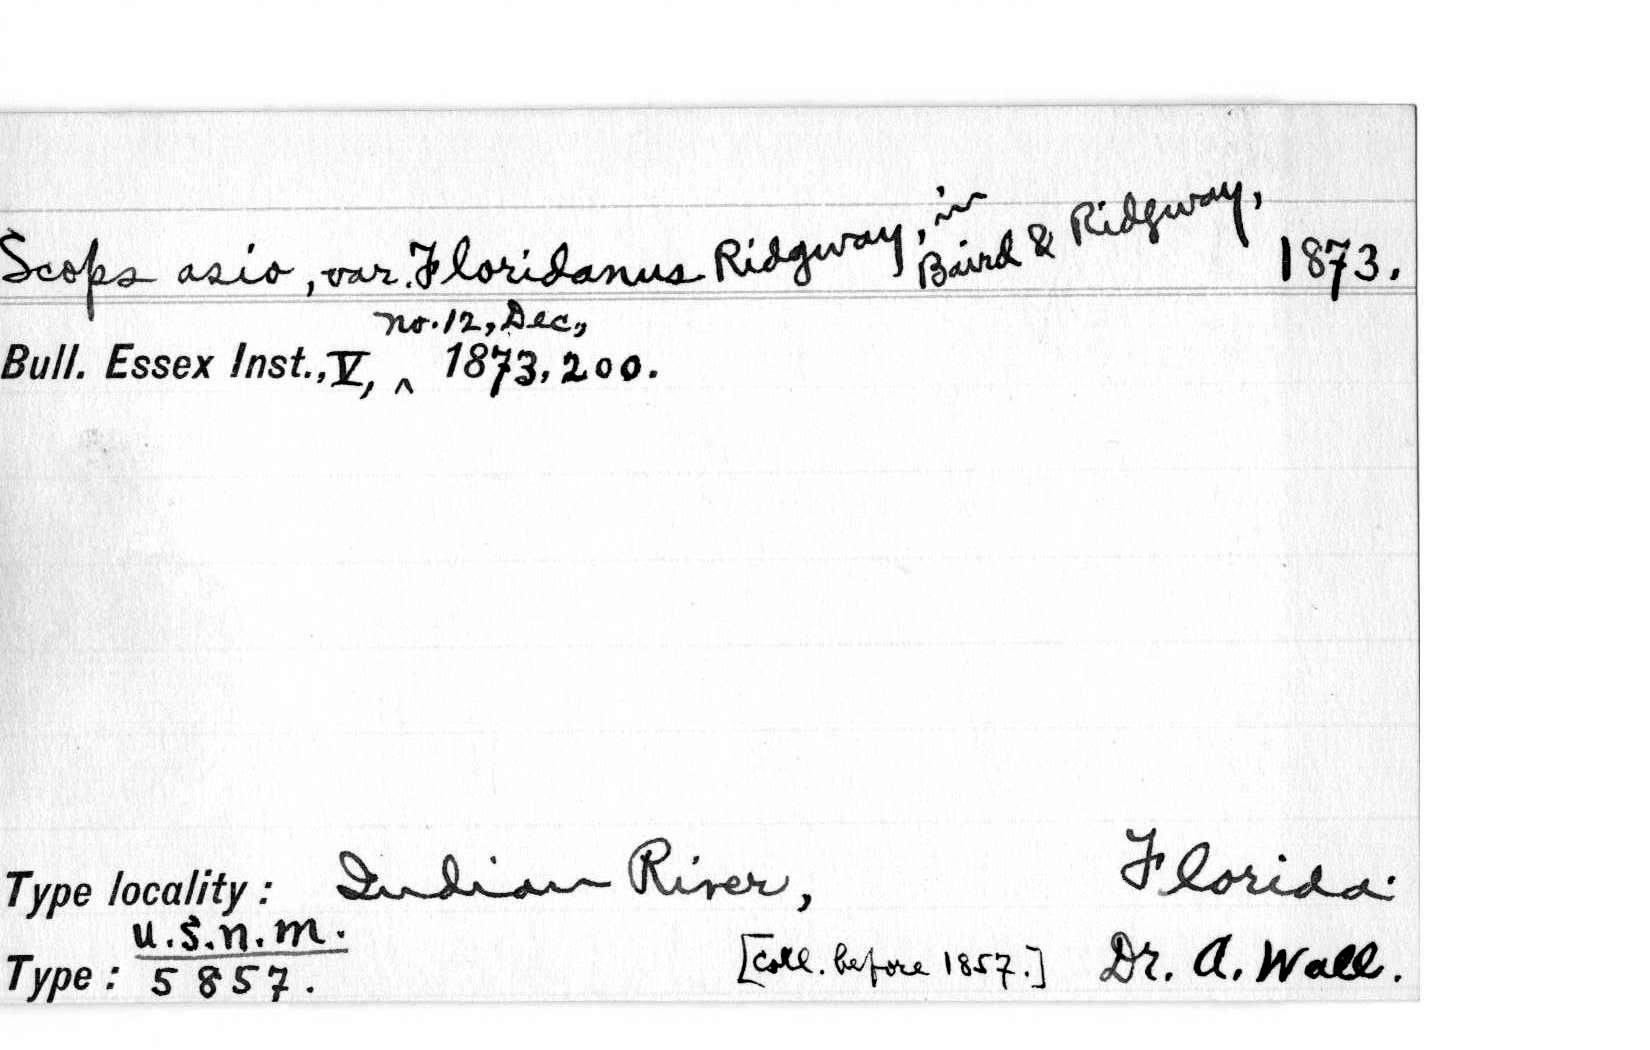 Scops asio, var. Floridanus Ridgway, in Baird & Ridgway, 1873.
Bull. Essex Inst., V, ^ no. 12, Dec., 1873, 200.
Type locality: Indian River, Florida.
Type: U.S.N.M. 5857. [coll. before 1857.] Dr. A. Wall.